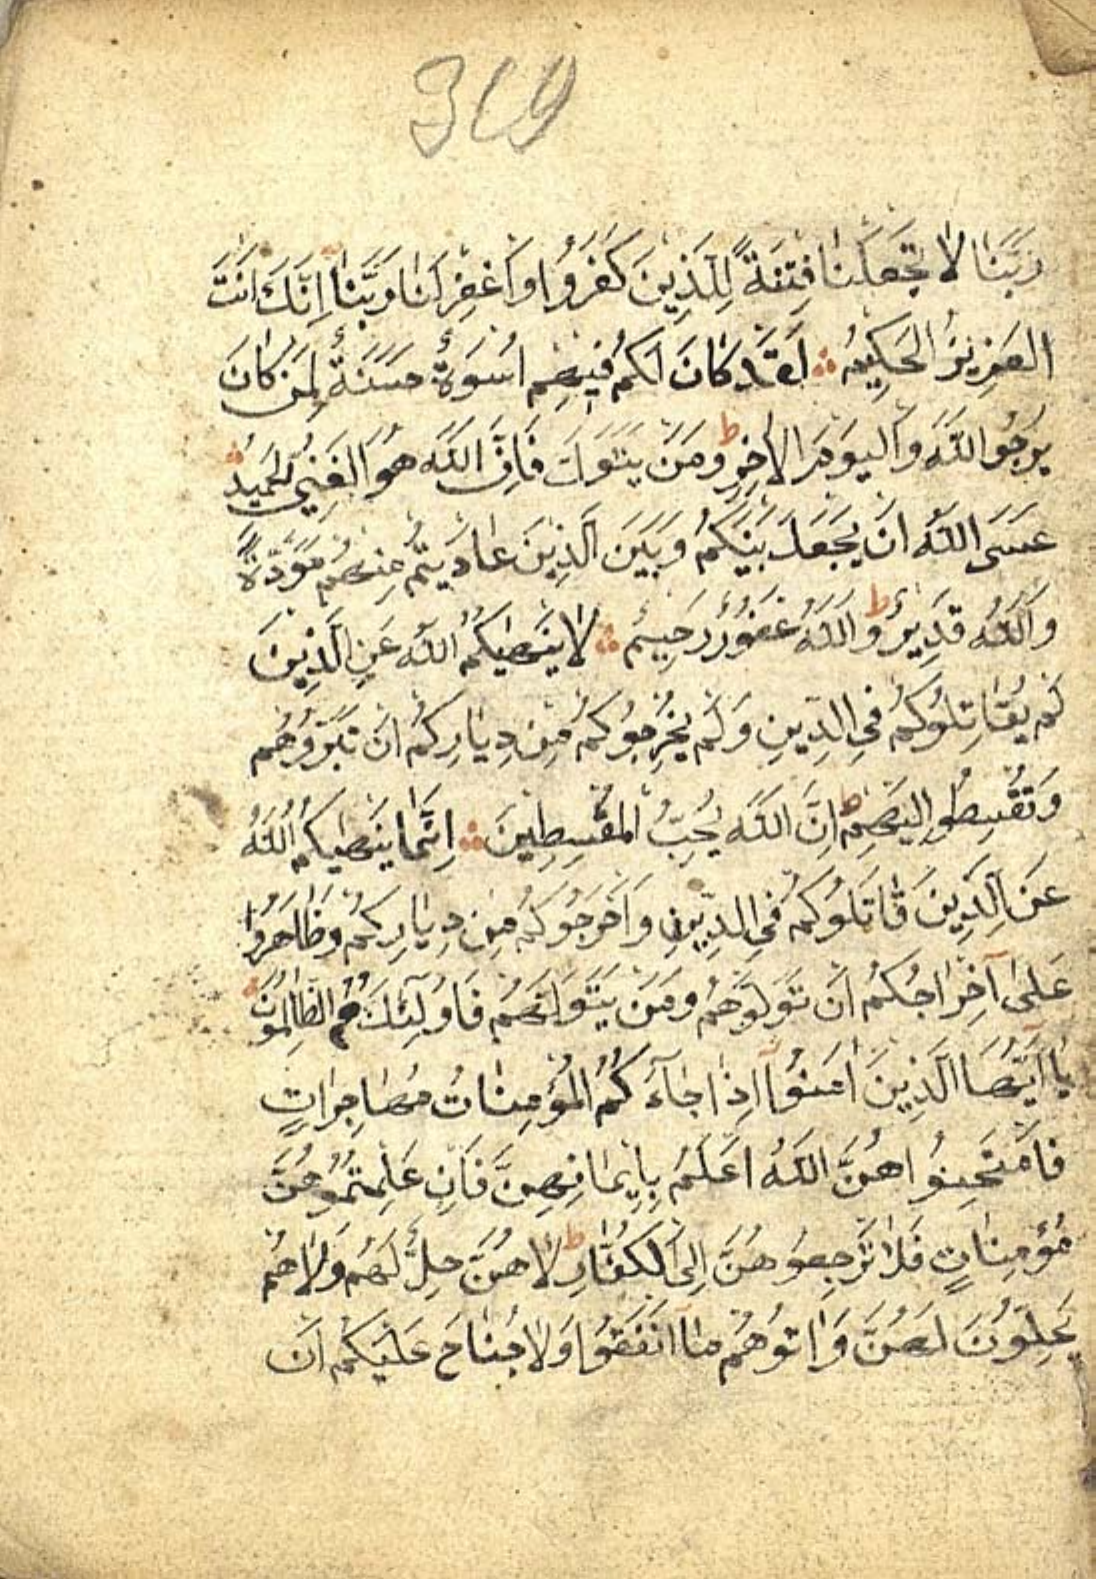 369
رَبَّنَا لَا تَجْعَلْنَا فِتْنَةً لِلَّذِينَ كَفَرُوا وَاغْفِرْ لَنَا رَبَّنَا اِنَّكَ اَنْتَ
الْعَزِيزُ الْحَكِيمُ لَقَدْ كَانَ لَكُمْ فِيهِمْ اُسْوَةٌ حَسَنَةٌ لِمَنْ كَانَ
يَرْجُو اللّٰهَ وَالْيَوْمَ الْاٰخِرَ ط وَمَنْ يَتَوَلَّ فَاِنَّ اللّٰهَ هُوَ الْغَنِيُّ الْحَمِيدُ
عَسَى اللّٰهُ اَنْ يَجْعَلَ بَيْنَكُمْ وَبَيْنَ الَّذِينَ عَادَيْتُمْ مِنْهُمْ مَوَدَّةً
وَاللّٰهُ قَدِيرٌ ط وَاللّٰهُ غَفُورٌ رَحِيمٌ لَا يَنْهٰيكُمُ اللّٰهُ عَنِ الَّذِينَ
لَمْ يُقَاتِلُوكُمْ فِي الدِّينِ وَلَمْ يُخْرِجُوكُمْ مِنْ دِيَارِكُمْ اَنْ تَبَرُّوهُمْ
وَتُقْسِطُوا اِلَيْهِمْ ط اِنَّ اللّٰهَ يُحِبُّ الْمُقْسِطِينَ اِنَّمَا يَنْهٰيكُمُ اللّٰهُ
عَنِ الَّذِينَ قَاتَلُوكُمْ فِي الدِّينِ وَاَخْرَجُوكُمْ مِنْ دِيَارِكُمْ وَظَاهَرُوا
عَلٰى اِخْرَاجِكُمْ اَنْ تَوَلَّوْهُمْ وَمَنْ يَتَوَلَّهُمْ فَاُولٰٓئِكَ هُمُ الظَّالِمُونَ
يَا اَيُّهَا الَّذِينَ اٰمَنُوا اِذَا جَاءَكُمُ الْمُؤْمِنَاتُ مُهَاجِرَاتٍ
فَامْتَحِنُوا هُنَّ اللّٰهُ اَعْلَمُ بِاِيمَانِهِنَّ فَاِنْ عَلِمْتُمُوهُنَّ
مُؤْمِنَاتٍ فَلَا تَرْجِعُوهُنَّ اِلَى الْكُفَّارِ ط لَا هُنَّ حِلٌّ لَهُمْ وَلَا هُمْ
يَحِلُّونَ لَهُنَّ وَاٰتُوهُمْ مَا اَنْفَقُوا وَلَا جُنَاحَ عَلَيْكُمْ اَنْ